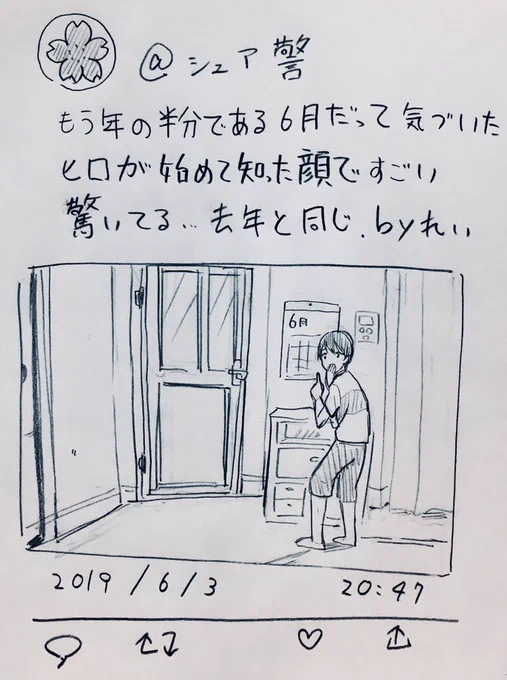 @シェア警
もう年の半分である6月だって気づいた
ヒロが始めて知った顔ですごい
驚いてる… 去年と同じ. byれい
6月
2019/6/3 20:47